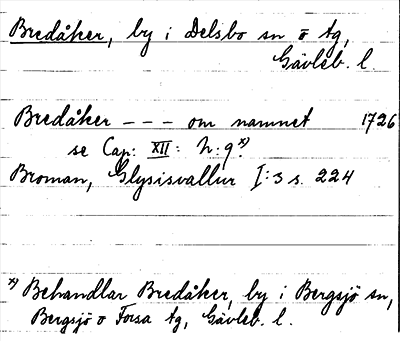 Bredåker, by i Delsbo sn o tg,
Gävleb. l.
Bredåker --- om namnet 1726
se Cap: XII: N: 9 x)
Broman, Glysisvallur I:3 s. 224
x) Behandlar Bredåker, by i Bergsjö sn,
Bergsjö o Forsa tg, Gävleb. l.